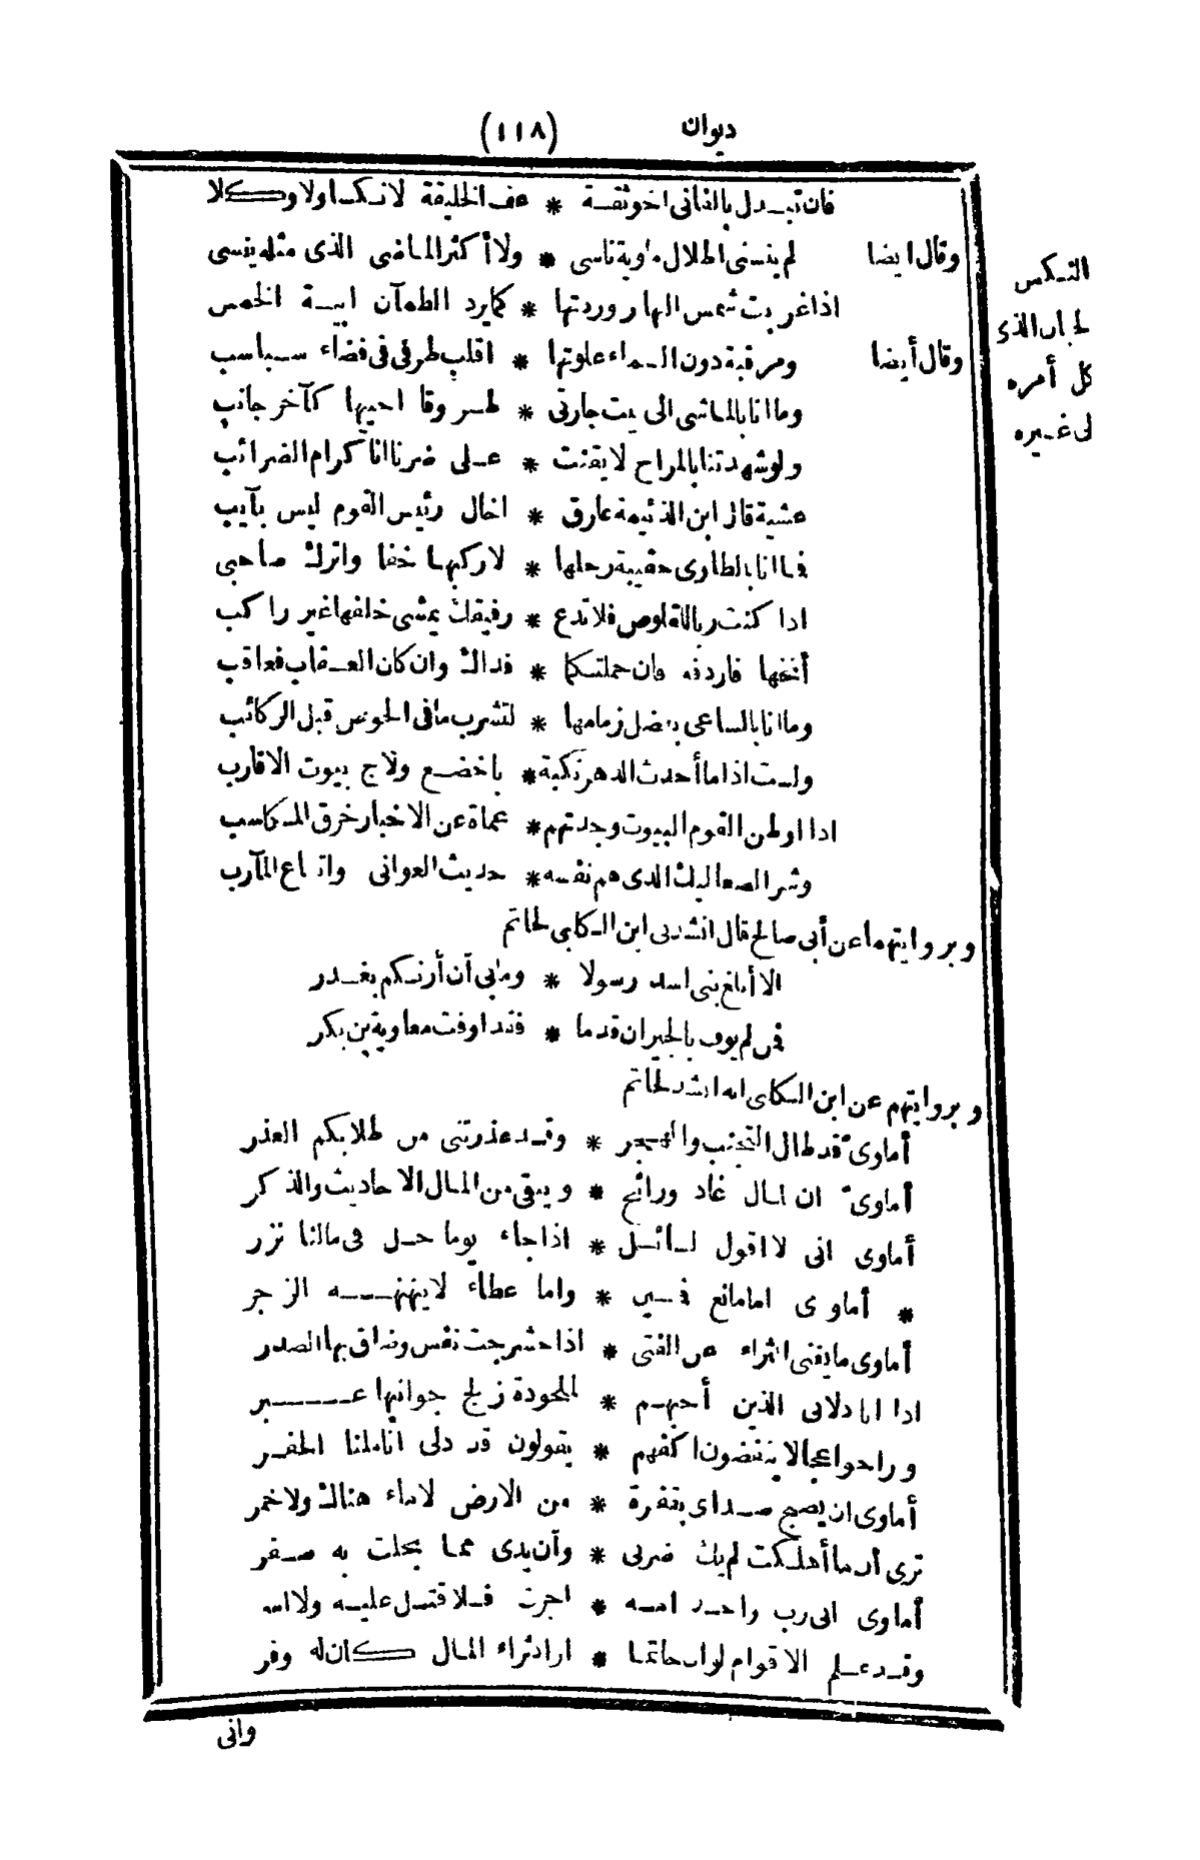 ديوان (١١٨)
فان تبدل بالفانى اخو ثقة * عف الخليقة لا نكسا ولا وكلا
وقال ايضا لم ينسنى اطلال ماوية ناسى * ولا أكثر الماضى الذى مثله ينسى
اذا غربت شمس النهار وردتها * كما يرد الظمآن ابية الخمس
وقال أيضا ومرقبة دون السماء علوتها * اقلب طرفى فى فضاء سباسب
وما انا بالماشى الى بيت جارتى * طروقا احييها كآخر جانب
ولو شهدتنا بالمراح لايقنت * على ضرنا انا كرام الضرائب
عشية قال ابن الذئيمة عارق * اخال رئيس القوم ليس بآيب
فما انا بالطاوى حقيبة رحلها * لاركبها خفا واترك صاحبى
اذا كنت ربا للقلوص فلا تدع * رفيقك يمشى خلفها غير راكب
أنخها فاردفه فان حملتكما * فذاك وان كان العقاب فعاقب
وما انا بالساعى بفضل زمامها * لتشرب ما فى الحوض قبل الركائب
ولست اذا ما أحدث الدهر نكبة * باخضع ولاج بيوت الاقارب
اذا اوطن القوم البيوت وجدتهم * عماة عن الاخبار خرق المكاسب
وشر الصعاليك الذى هم نفسه * حديث الغوانى واتباع المآرب
وبروايتهما عن أبى صالح قال انشدنى ابن الكلبى لحاتم
الا أبلغ بنى اسد رسولا * وما بى أن أزنكم بغدر
فمن لم يوف بالجيران قدما * فقد اوفت معاوية بن بكر
وبروايتهم عن ابن الكلبى انه انشد لحاتم
أماوى قد طال التجنب والهجر * وقد عذرتنى من طلابكم العذر
أماوى ان المال غاد ورائح * ويبقى من المال الاحاديث والذكر
أماوى انى لا اقول لسائل * اذا جاء يوما حل فى مالنا نزر
* أماوى اما مانع فمبين * واما عطاء لا ينهنهه الزجر
أماوى ما يغنى الثراء عن الفتى * اذا حشرجت نفس وضاق بها الصدر
اذا انا دلانى الذين أحبهم * لملحودة زلج جوانبها غبر
وراحوا عجالا ينفضون اكفهم * يقولون قد دلى أناملنا الحفر
أماوى ان يصبح صداى بقفرة * من الارض لا ماء هناك ولا خمر
ترى أن ما أهلكت لم يك ضرنى * وأن يدى مما بخلت به صفر
أماوى انى رب واحد امه * اجرت فلا قتل عليه ولا اسر
وقد علم الاقوام لو ان حاتما * اراد ثراء المال كان له وفر
وانى
النكس
الجبان الذى
كل أمره
لى غيره